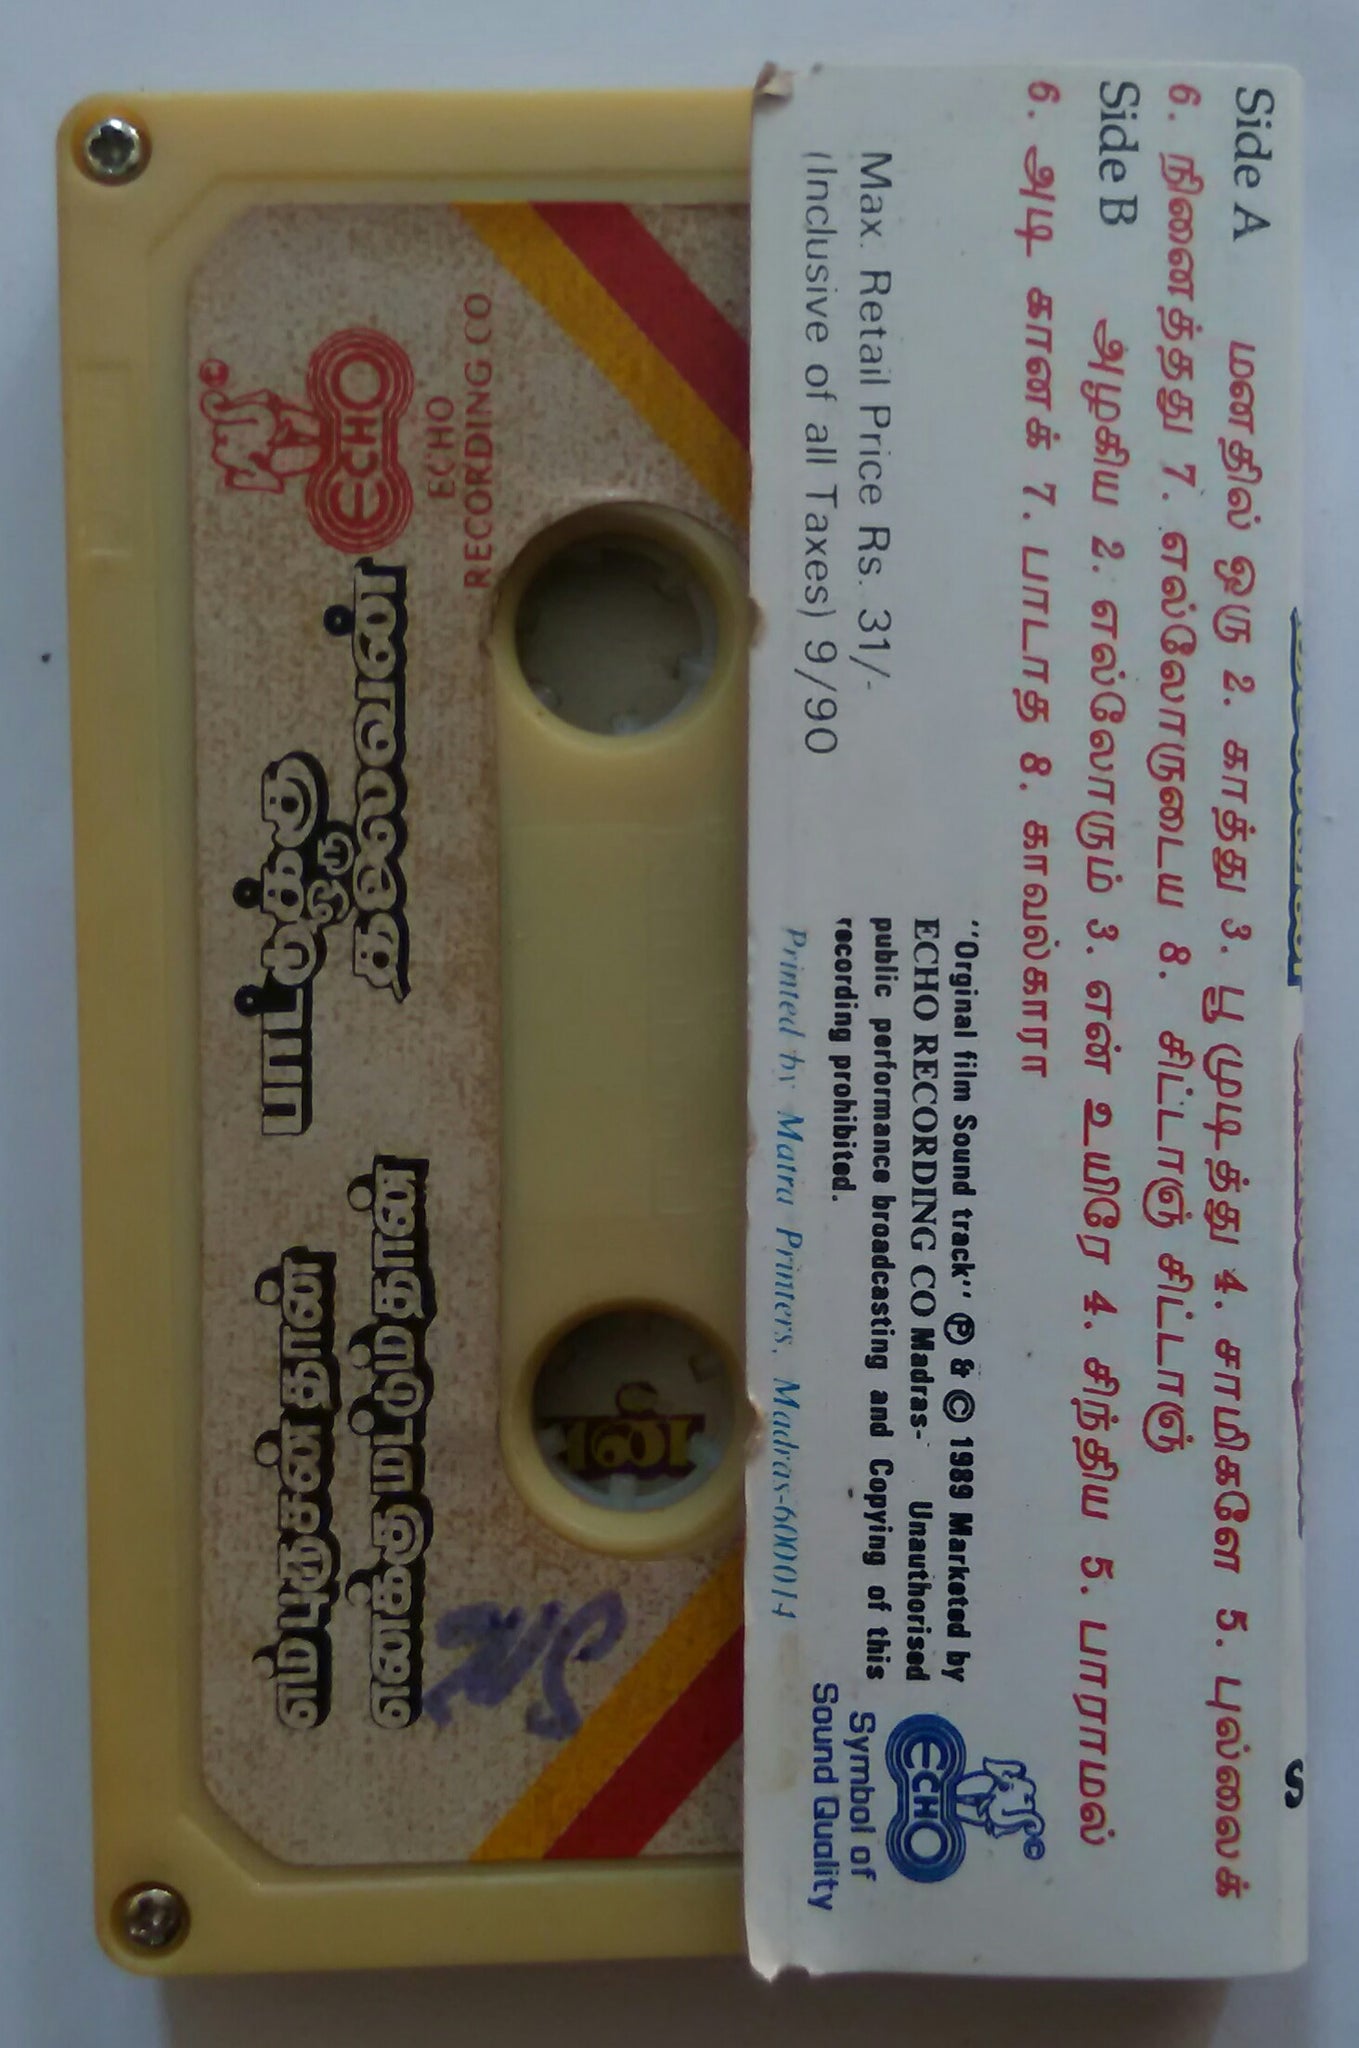 Side A மனதில் ஒரு 2. காத்து 3. பூ முடித்து 4. சாமிகளே 5. புல்லைக்
6. நினைத்தது 7. எல்லோருடைய 8. சிட்டாஞ் சிட்டாஞ்
Side B அழகிய 2. எல்லோரும் 3. என் உயிரே 4. சிந்திய 5. பாராமல்
6. அடி கானக் 7. பாடாத 8. காவல்காரா
Max. Retail Price Rs. 31/-
(Inclusive of all Taxes) 9/90
"Orginal film Sound track" ℗ & © 1989 Marketed by
ECHO RECORDING CO Madras- Unauthorised
public performance broadcasting and Copying of this
recording prohibited.
Printed by Matra Printers, Madras-600014
ECHO
©
Symbol of
Sound Quality
S
RECORDING CO
ECHO
ECHO
©
தலைவன்
ஒரு
பாட்டுக்கு
எனக்கு மட்டும்தான்
எம் புருசன் தான்